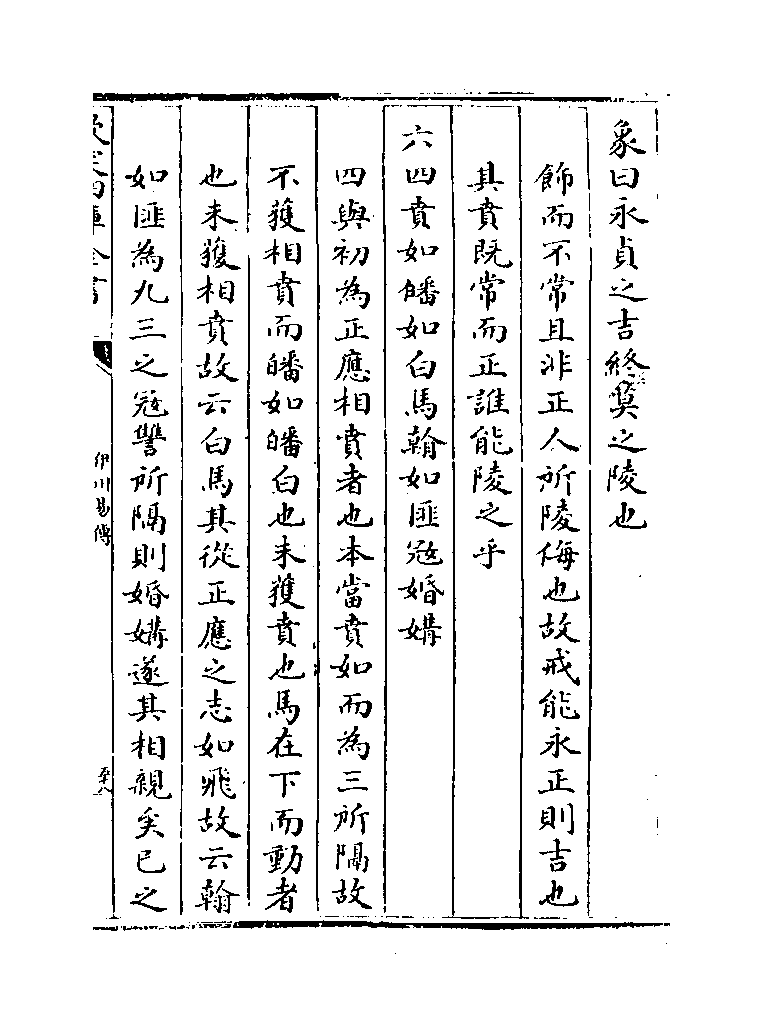 象曰永貞之吉終莫之陵也
飾而不常且非正人所陵侮也故戒能永正則吉也
其賁既常而正誰能陵之乎
六四賁如皤如白馬翰如匪冦婚媾
四與初為正應相賁者也本當賁如而為三所隔故
不獲相賁而皤如皤白也未獲賁也馬在下而動者
也未獲相賁故云白馬其從正應之志如飛故云翰
如匪為九三之冦讐所隔則婚媾遂其相親矣已之
欽定四庫全書
伊川易傳